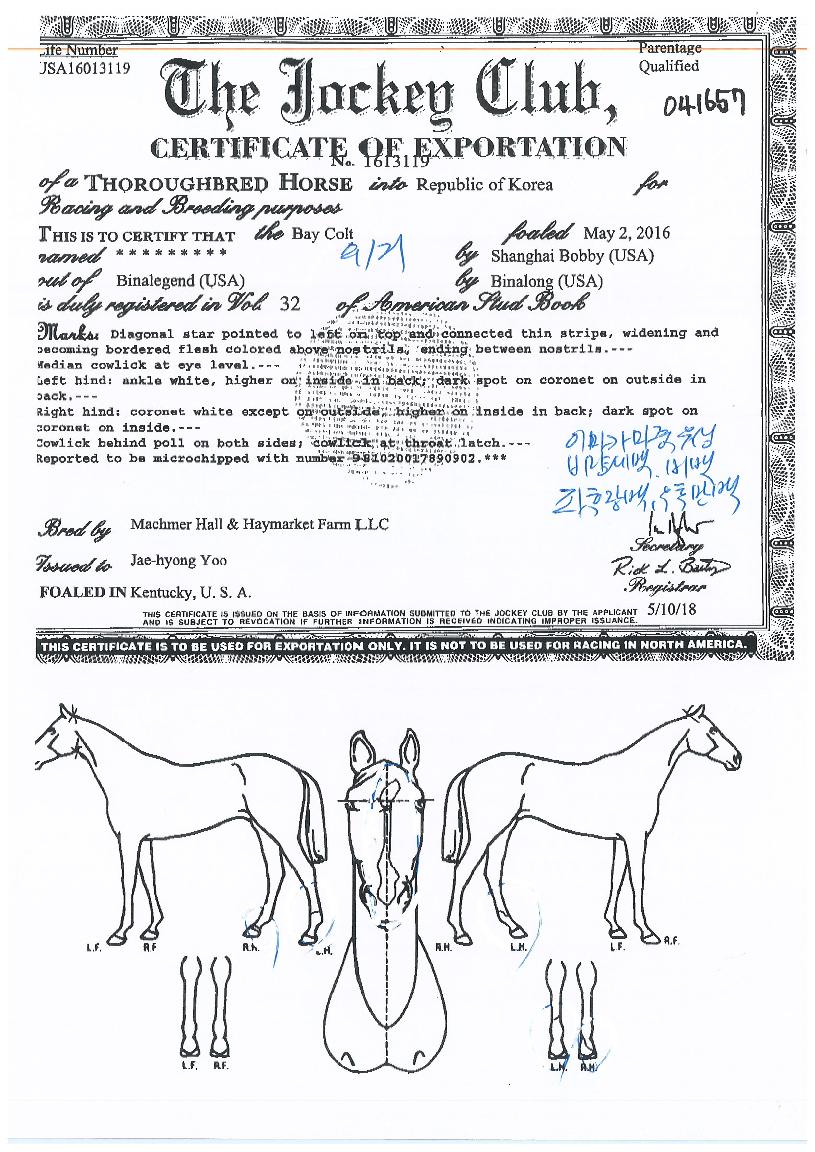 Life Number
JSA16013119
Parentage
Qualified
041657
The Jockey Club,
CERTIFICATE OF EXPORTATION
No. 1613119
of a THOROUGHBRED HORSE into Republic of Korea for
Racing and Breeding purposes
THIS IS TO CERTIFY THAT the Bay Colt foaled May 2, 2016
named * * * * * * * * * by Shanghai Bobby (USA)
out of Binalegend (USA) by Binalong (USA)
is duly registered in Vol. 32 of American Stud Book
Marks: Diagonal star pointed to left on top and connected thin strips, widening and
becoming bordered flesh colored above nostrils, ending between nostrils.---
Median cowlick at eye level.---
Left hind: ankle white, higher on inside in back; dark spot on coronet on outside in
back.---
Right hind: coronet white except on outside, higher on inside in back; dark spot on
coronet on inside.---
Cowlick behind poll on both sides; cowlick at throat latch.---
Reported to be microchipped with number 981020017890902.***
Bred by Machmer Hall & Haymarket Farm LLC
Secretary
Issued to Jae-hyong Yoo
Registrar
FOALED IN Kentucky, U. S. A.
THIS CERTIFICATE IS ISSUED ON THE BASIS OF INFORMATION SUBMITTED TO THE JOCKEY CLUB BY THE APPLICANT
AND IS SUBJECT TO REVOCATION IF FURTHER INFORMATION IS RECEIVED INDICATING IMPROPER ISSUANCE.
5/10/18
THIS CERTIFICATE IS TO BE USED FOR EXPORTATION ONLY. IT IS NOT TO BE USED FOR RACING IN NORTH AMERICA.
L.F. R.F. R.H. L.H. R.H. L.H. L.F. R.F.
L.F. R.F. L.H. R.H.